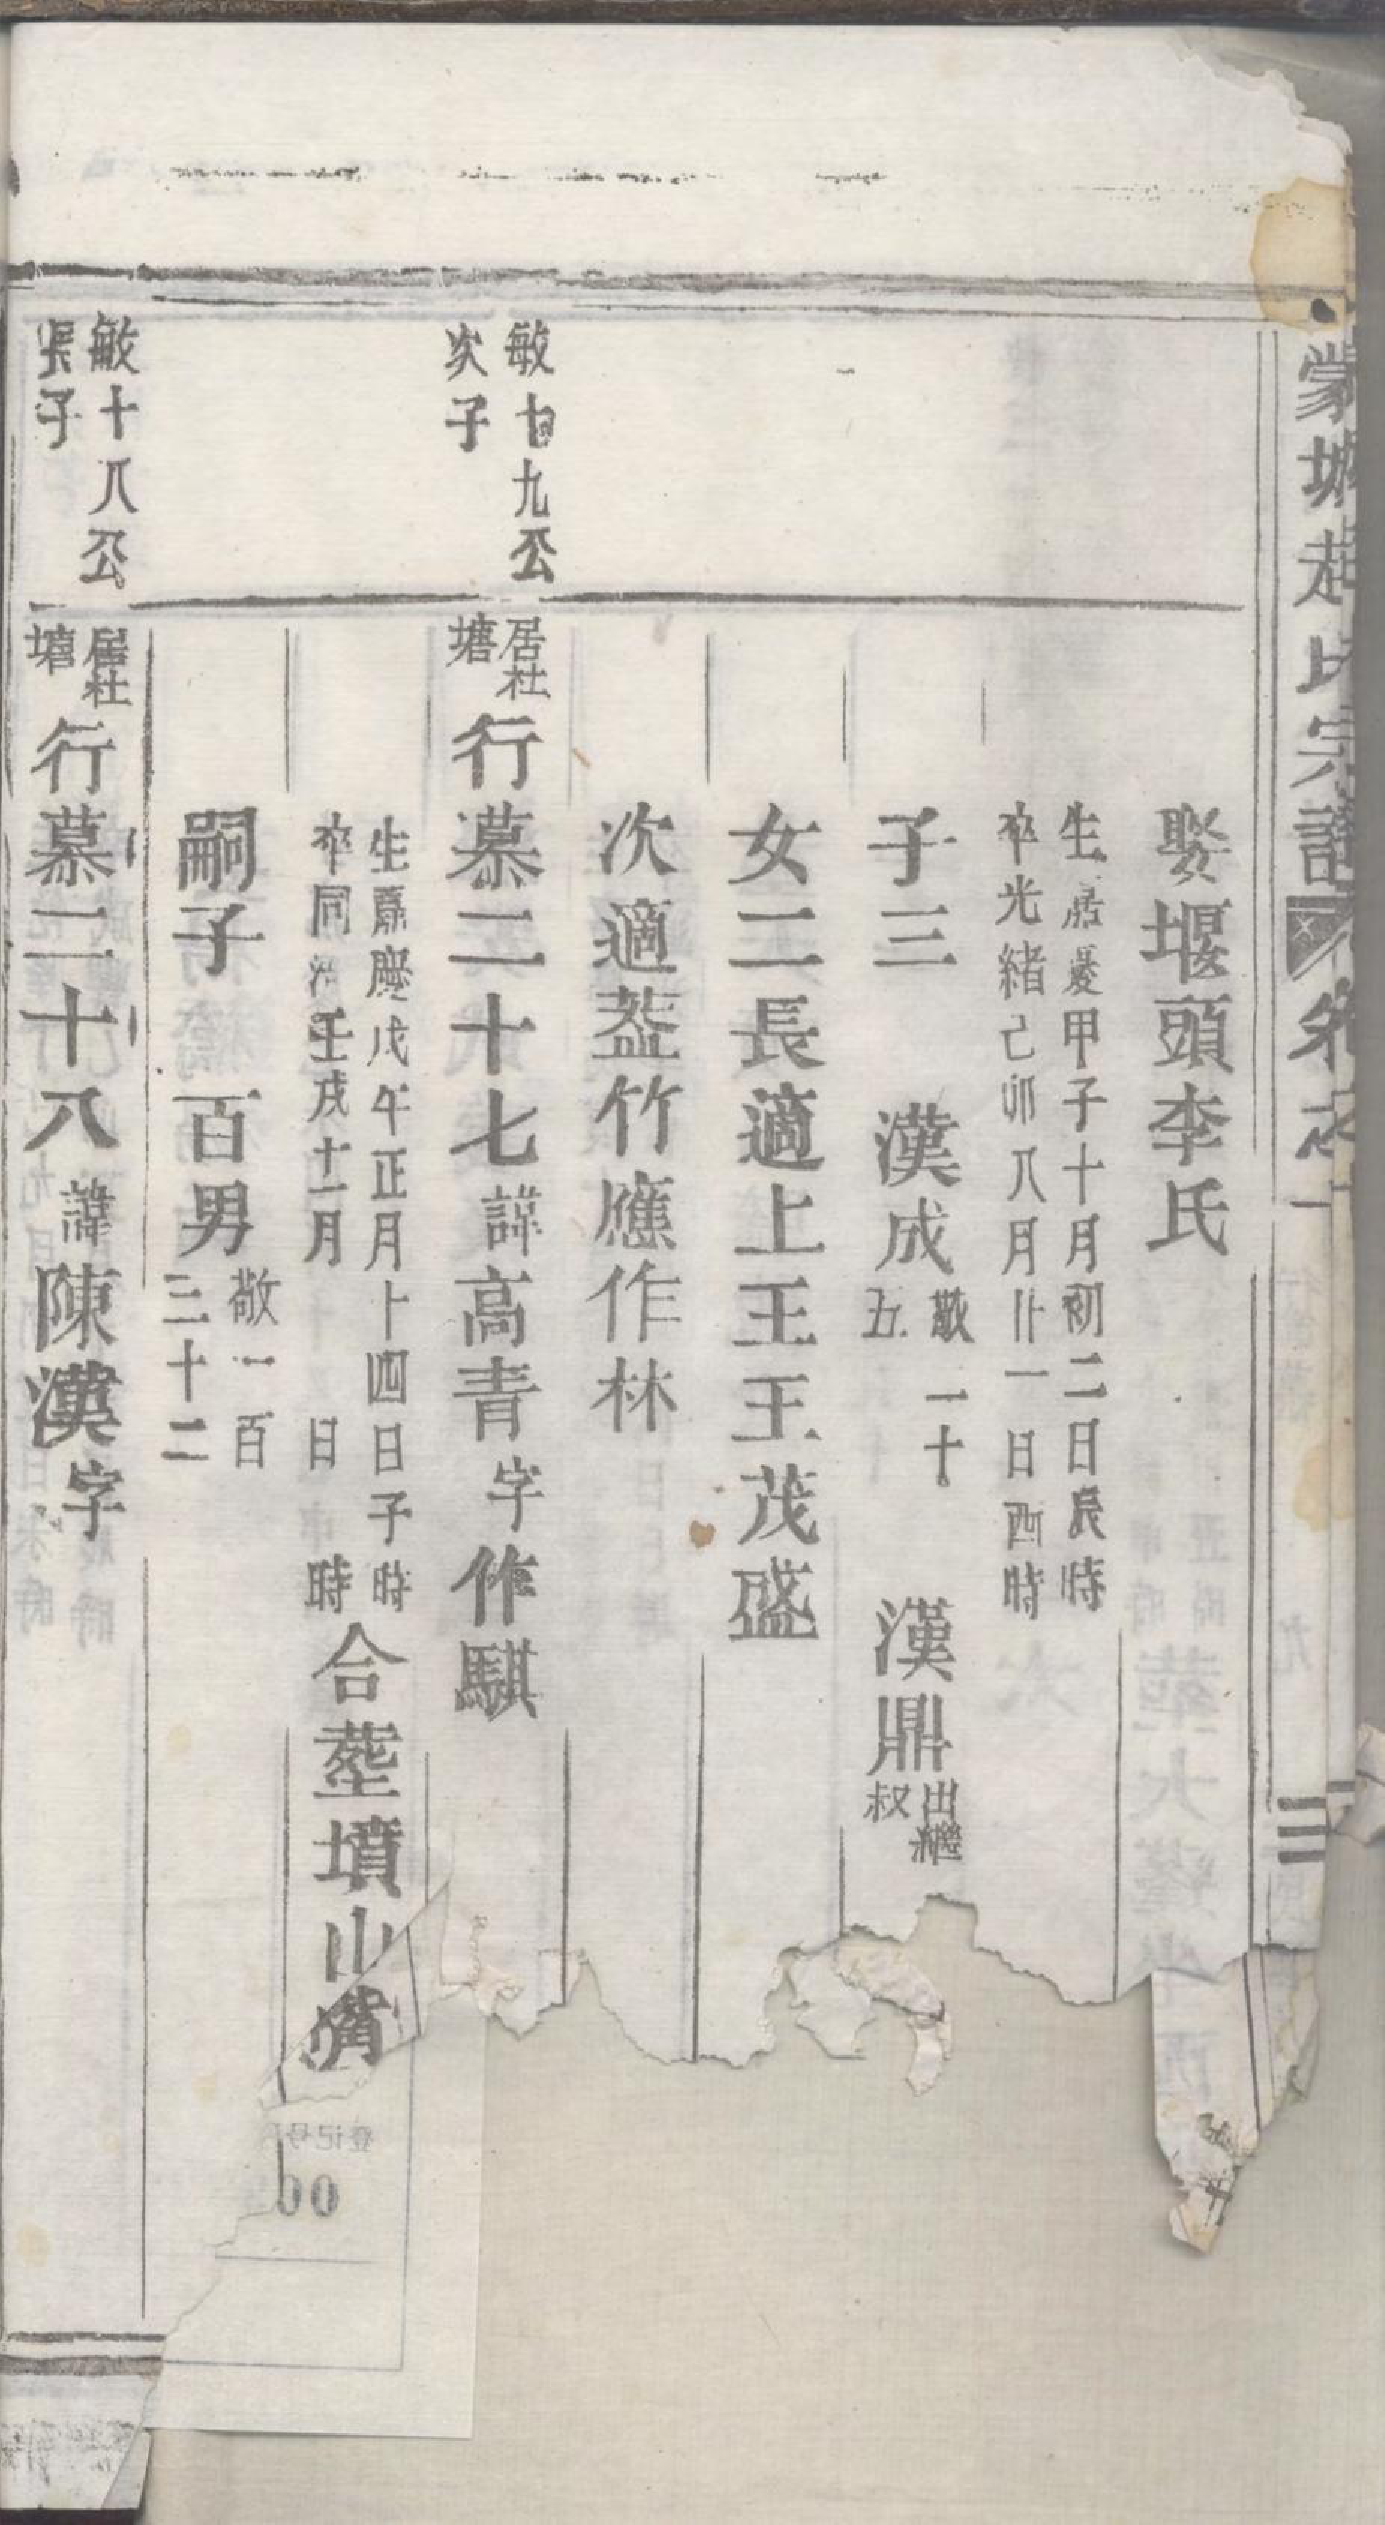 蒙城趙氏宗譜 卷之一
三
娶堰頭李氏
生嘉慶甲子十月初二日辰時
卒光緒己卯八月廿一日酉時
子三 漢成 敬一十
五 漢鼎 出繼
叔
女二長適上王王茂盛
次適盐竹應作林
敏十九公
次子
居社
塘
行慕二十七諱高青字作騏
生嘉慶戊午正月十四日子時
卒同治壬戌十二月 日 時合塟墳山嘴
嗣子 百男 敬一百
三十二
敏十八公
長子
居社
塘
行慕二十八諱陳漢字
登记号
00